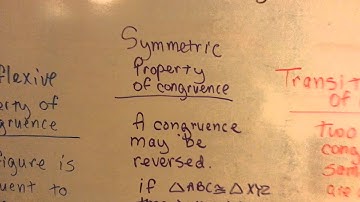 Symmetric
Property
of congruence
A congruence
may be
reversed.
if △ABC≅△XYZ
flexive
erty of
gruence
figure is
uent to
Transit
of
two
cong
sam
are